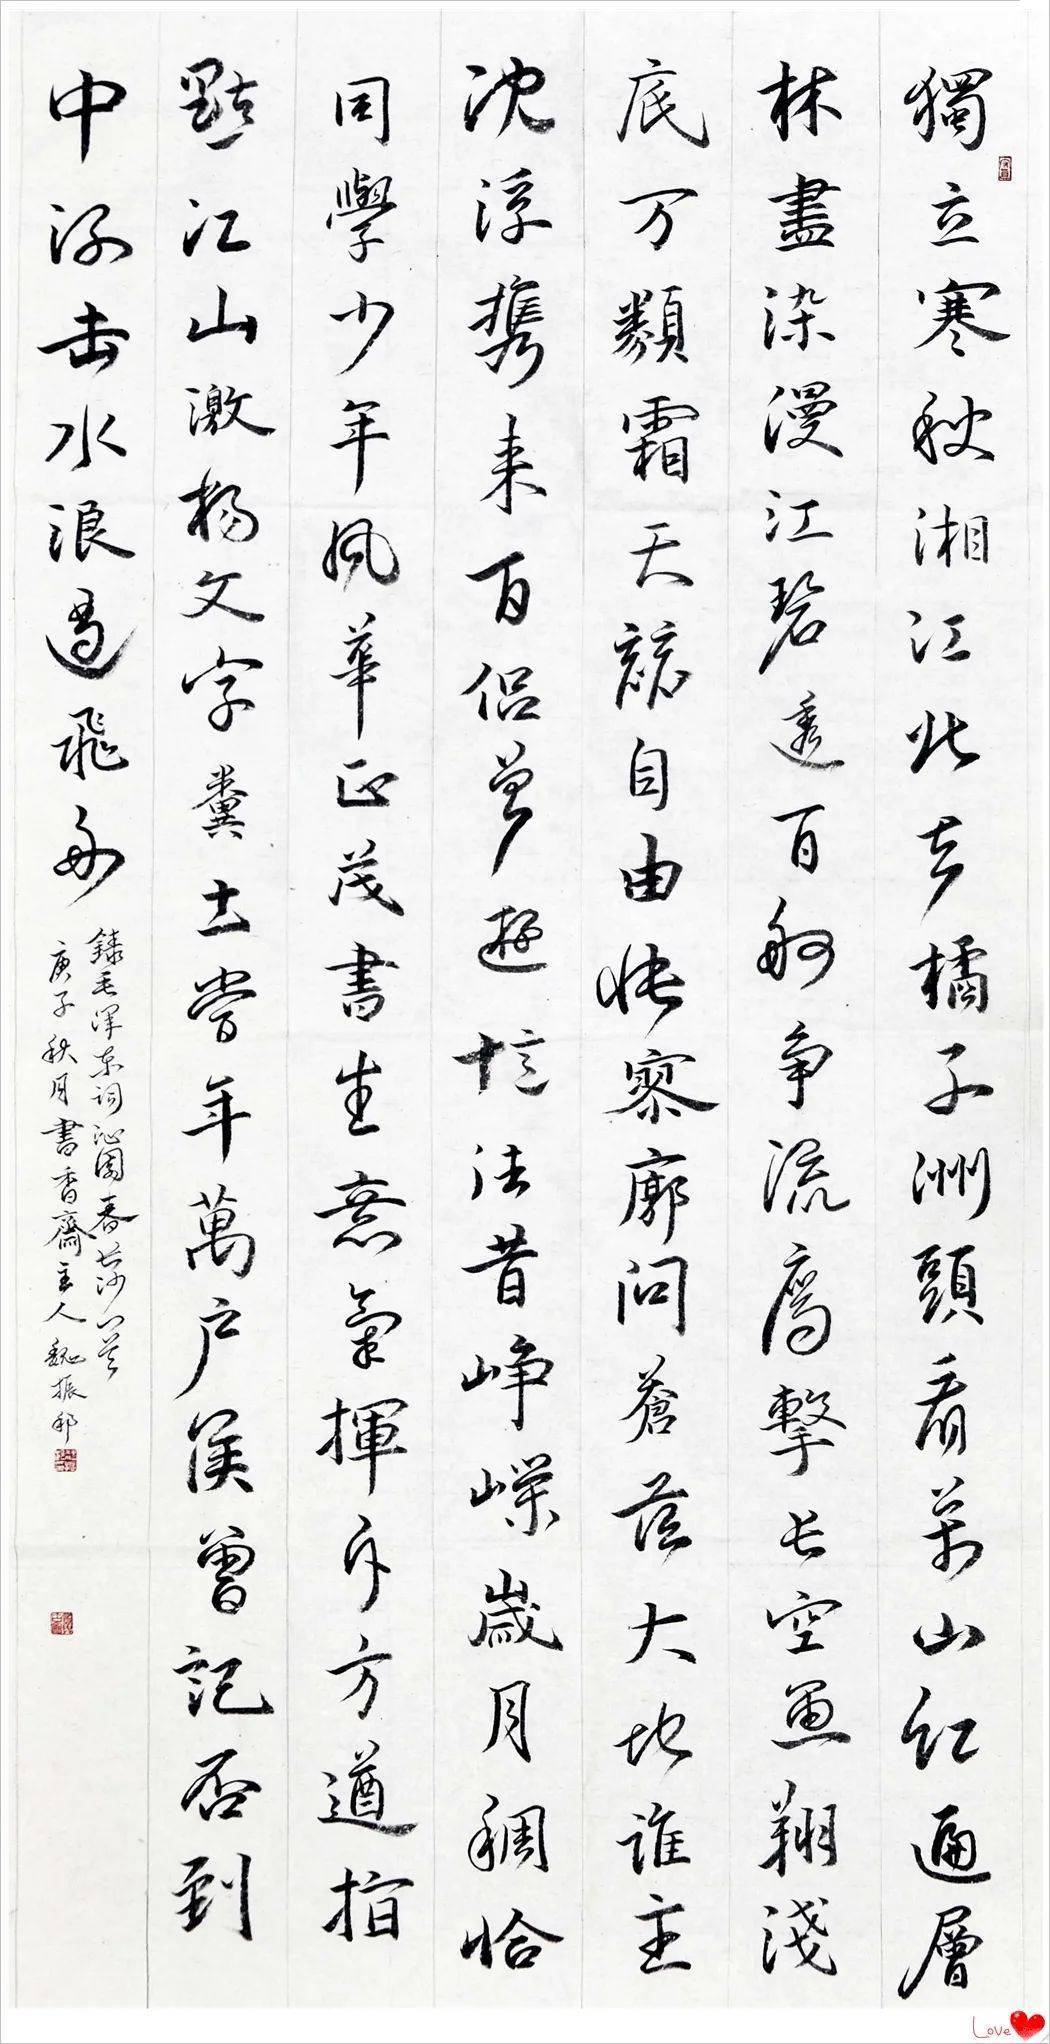 獨立寒秋湘江北去橘子洲頭看萬山紅遍層
林盡染漫江碧透百舸争流鷹擊長空魚翔淺
底万類霜天競自由悵寥廓問蒼茫大地誰主
沈浮携来百侣曾遊憶往昔崢嶸歲月稠恰
同學少年風華正茂書生意氣揮斥方遒指
點江山激揚文字糞土當年萬户侯曾記否到
中流击水浪遏飛舟
錄毛澤東詞沁園春長沙一首
庚子秋月書香齋主人魏振邦
Love